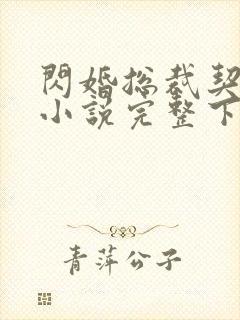 閃婚总裁契
小說完整下
青萍公子